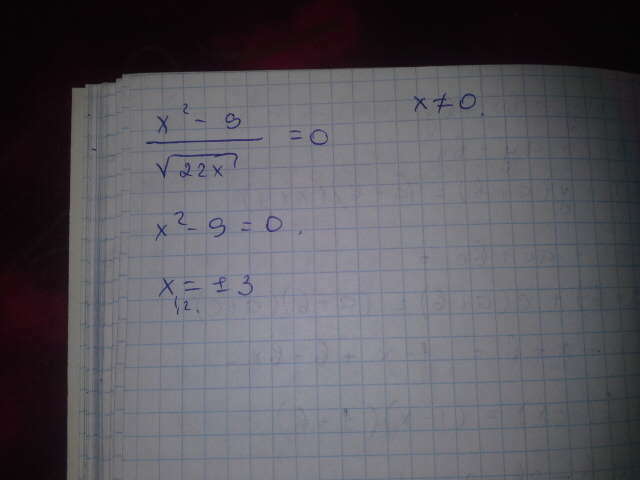 x² - 9 / √22x = 0
x ≠ 0.
x² - 9 = 0.
x₁,₂. = ± 3